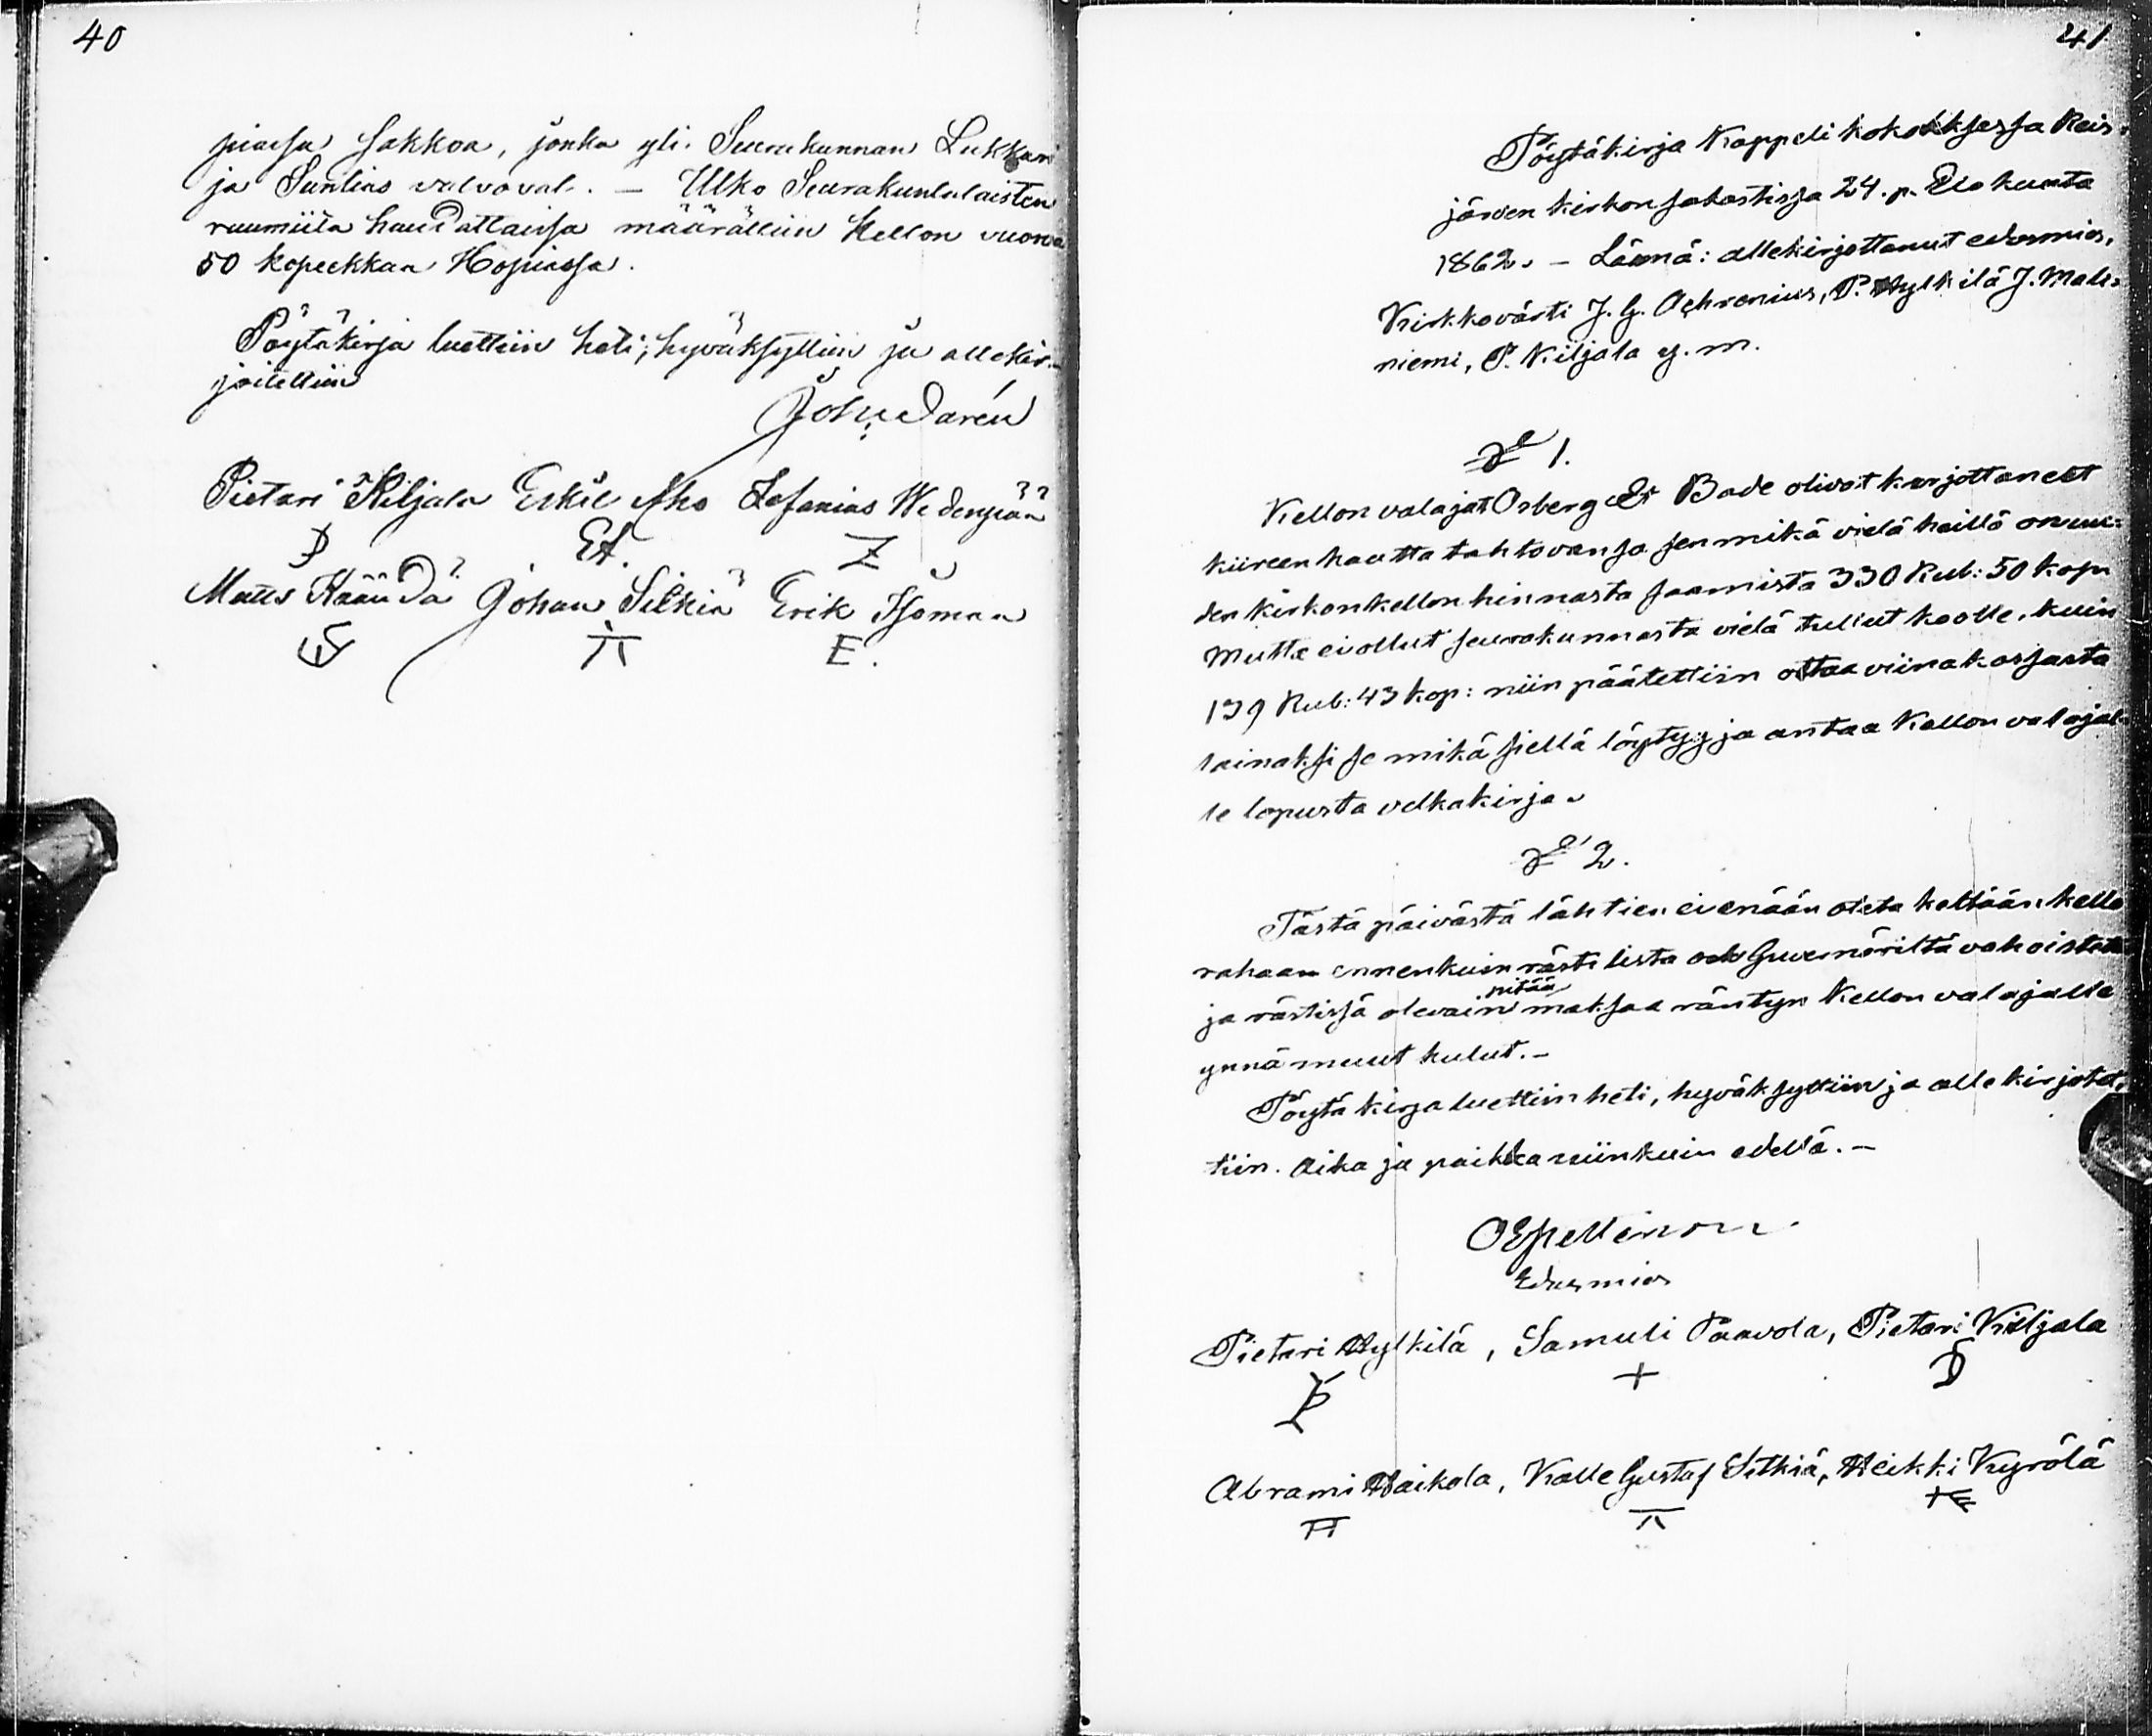 40
piassa sakkoa, jonka yli Seurakunnan Lukkari
ja Suntio valvovat. — Ulko Seurakuntalaisten
ruumiita haudattaissa määrättiin Kellon vuora
50 kopeekkaa Hopiassa.
Pöytäkirja luettiin heti, hyväksyttiin ja allekir-
joitettiin
Joh. Darén
Pietari Kiljala Erkki Aho Zefanias Wedenpää
EA. Z
Matts Kääntä Johan Sitkiä Erik Isomaa
E.
41
Pöytäkirja Kappeli kokouksessa Reis-
järven kirkon sakastissa 24. p. Elokuuta
1862. — Läsnä: allekirjottanut edusmies,
Kirkkovärti J. G. Achrenius, P. Hylkilä J. Mali-
niemi, P. Kiljala y. m.
§ 1.
Kellon valajat Osberg & Bade olivat kirjottaneet
kiireen kautta tahtovansa sen mikä vielä heillä on uu-
den kirkonkellon hinnasta saamista 330 Rub: 50 kop.
Mutta ei ollut seurakunnasta vielä tullut koolle, kuin
139 Rub: 43 kop: niin päätettiin ottaa viinakassasta
lainaksi se mikä siellä löytyy ja antaa Kellon valajal-
le lopusta velkakirja.
§ 2.
Tästä päivästä lähtien ei enään oteta keltään kello
rahaan ennenkuin rästi lista on Guvernöriltä vahvistettu
ja rästissä olevain pitää maksaa räntyn Kellon valajalle
ynnä muut kulut. —
Pöytäkirja luettiin heti, hyväksyttiin ja allekirjotet-
tiin. Aika ja paikka niinkuin edellä. —
Edusmies
Pietari Hylkilä, Samuli Paavola, Pietari Kiljala
+
Abrami Haikola, Kalle Gustaf Sitkiä, Heikki Kyrölä